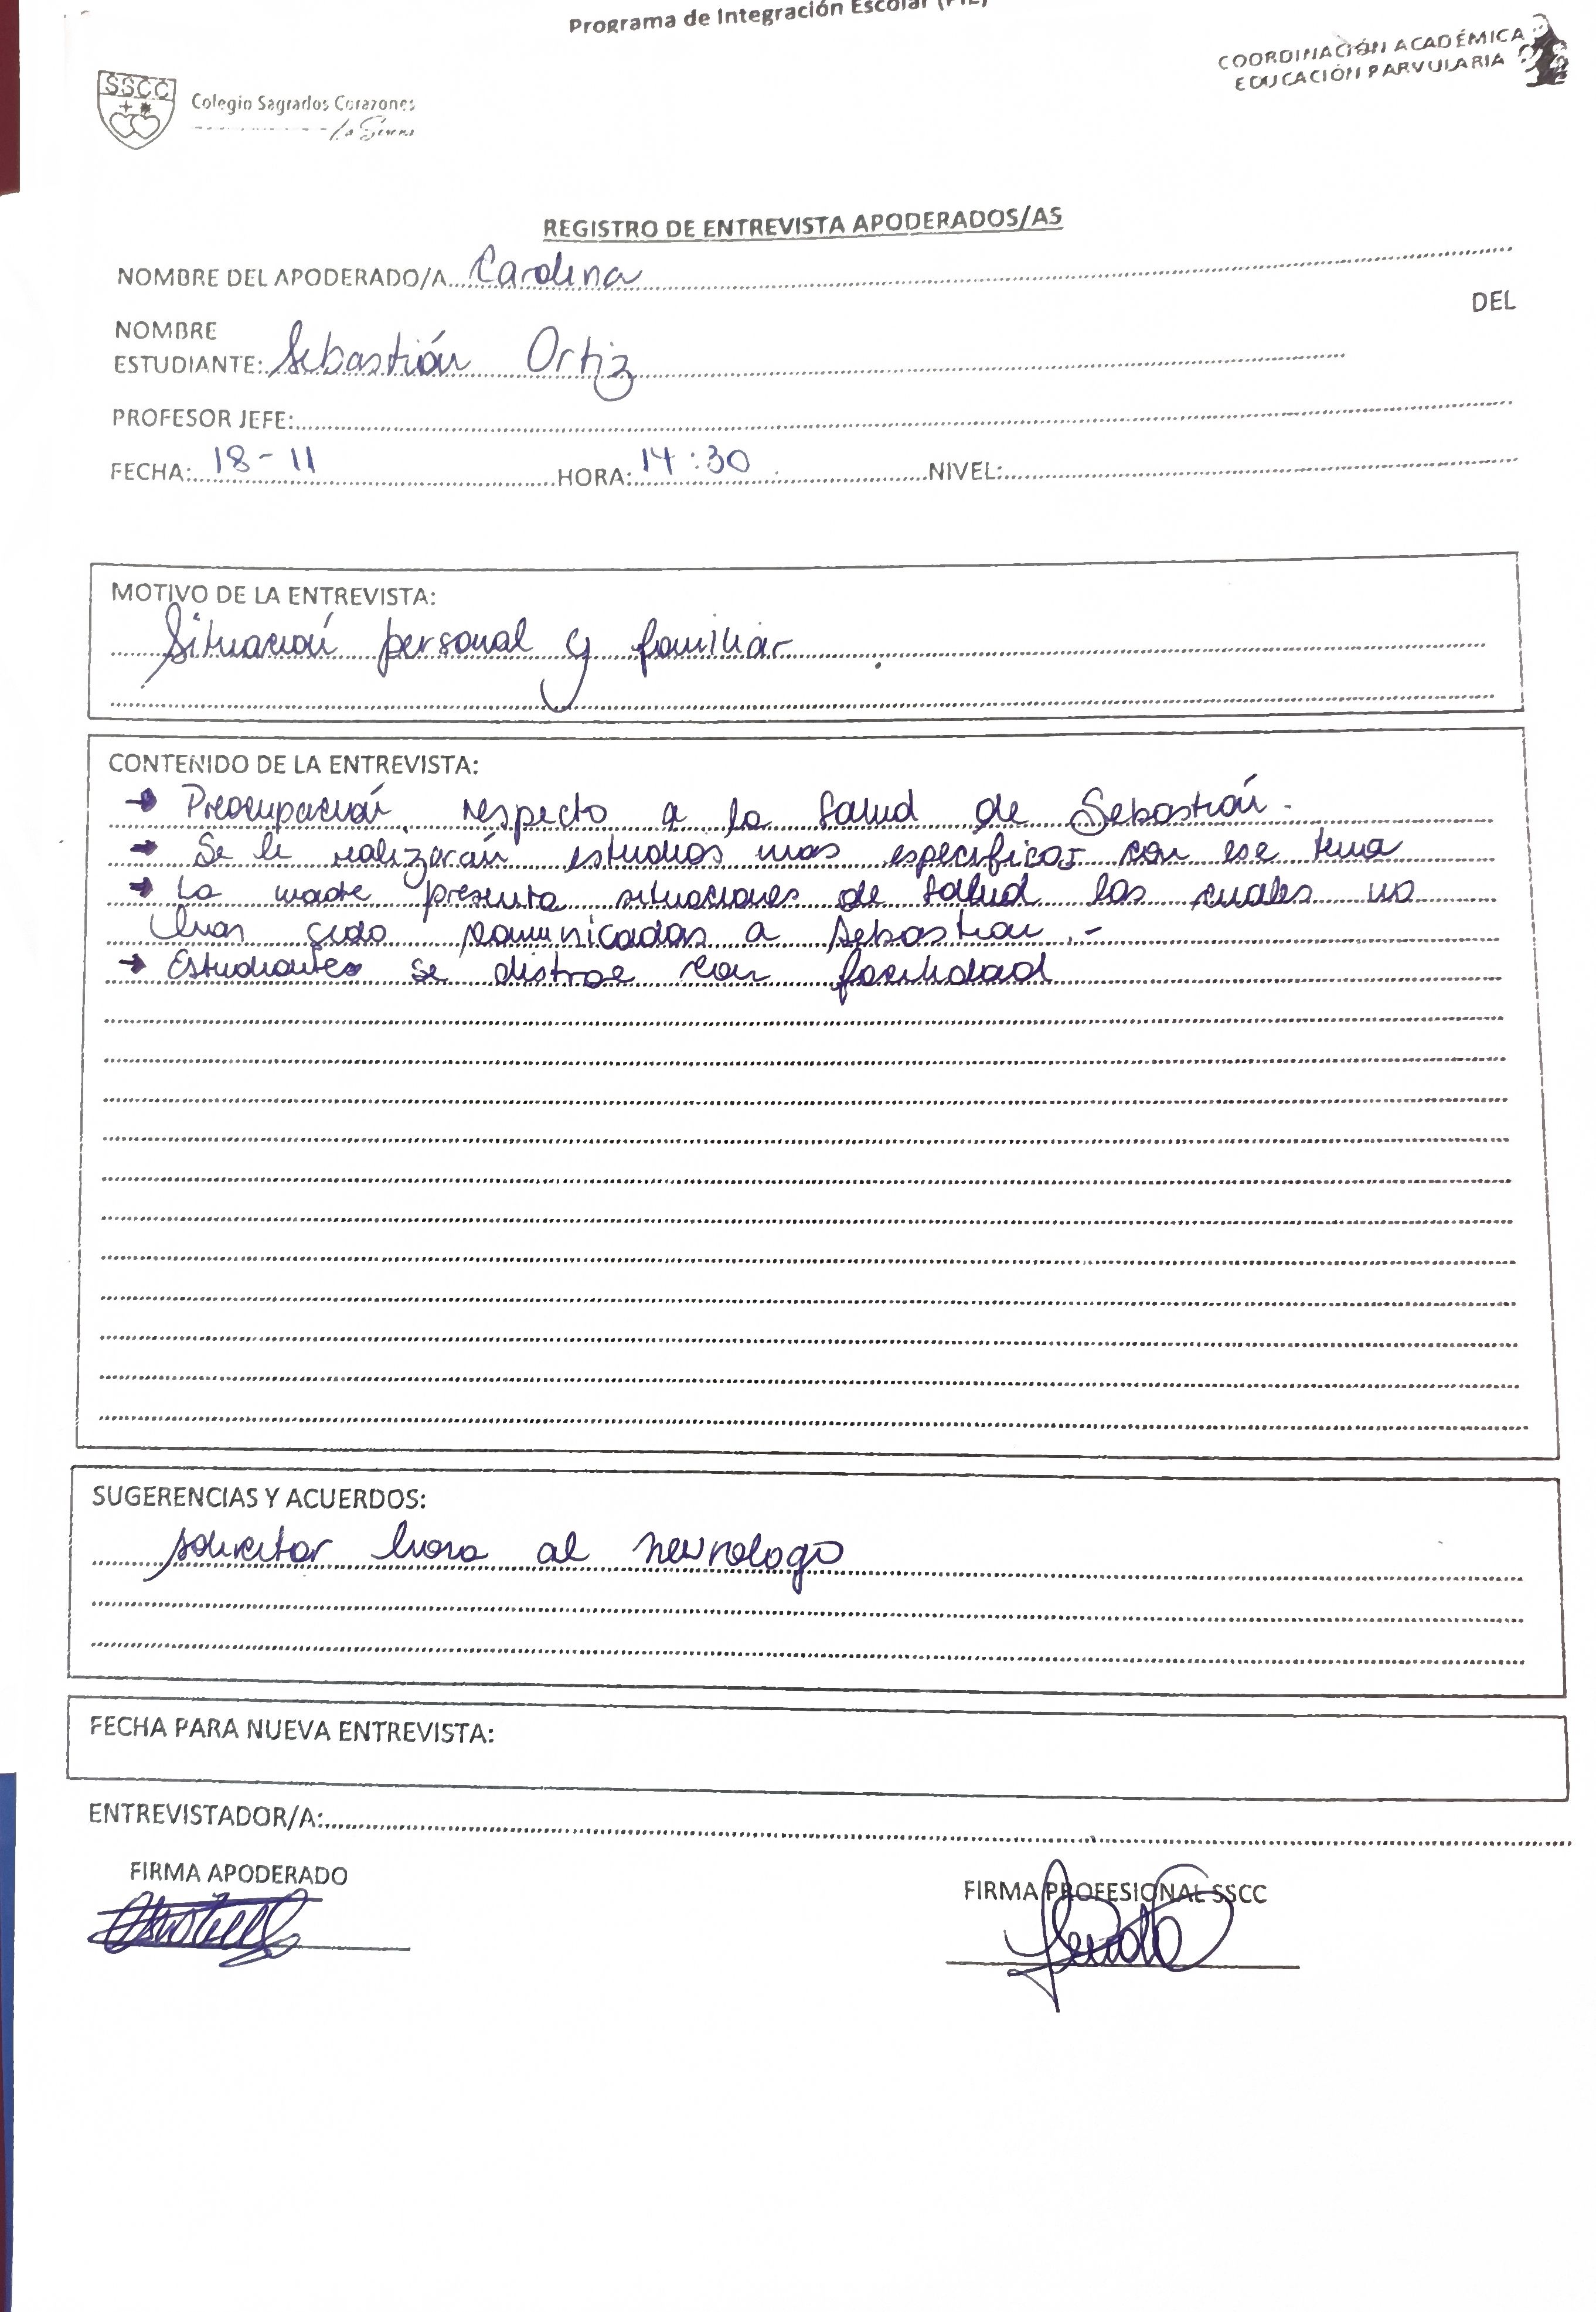 Programa de Integración Escolar (PIE)
COORDINACIÓN ACADÉMICA
EDUCACIÓN PARVULARIA
SSCC
Colegio Sagrados Corazones
La Serena
REGISTRO DE ENTREVISTA APODERADOS/AS
NOMBRE DEL APODERADO/A Carolina
NOMBRE DEL
ESTUDIANTE: Sebastián Ortiz
PROFESOR JEFE:
FECHA: 18-11 HORA: 14:30 NIVEL:
MOTIVO DE LA ENTREVISTA:
Situación personal y familiar
CONTENIDO DE LA ENTREVISTA:
→ Preocupación respecto a la salud de Sebastián.-
→ Se le realizarán estudios mas especificos con ese tema
→ La madre presenta situaciones de salud los cuales no
han sido comunicados a Sebastian.-
→ Estudiante se distrae con facilidad
SUGERENCIAS Y ACUERDOS:
solicitar hora al neurologo
FECHA PARA NUEVA ENTREVISTA:
ENTREVISTADOR/A:
FIRMA APODERADO
FIRMA PROFESIONAL SSCC